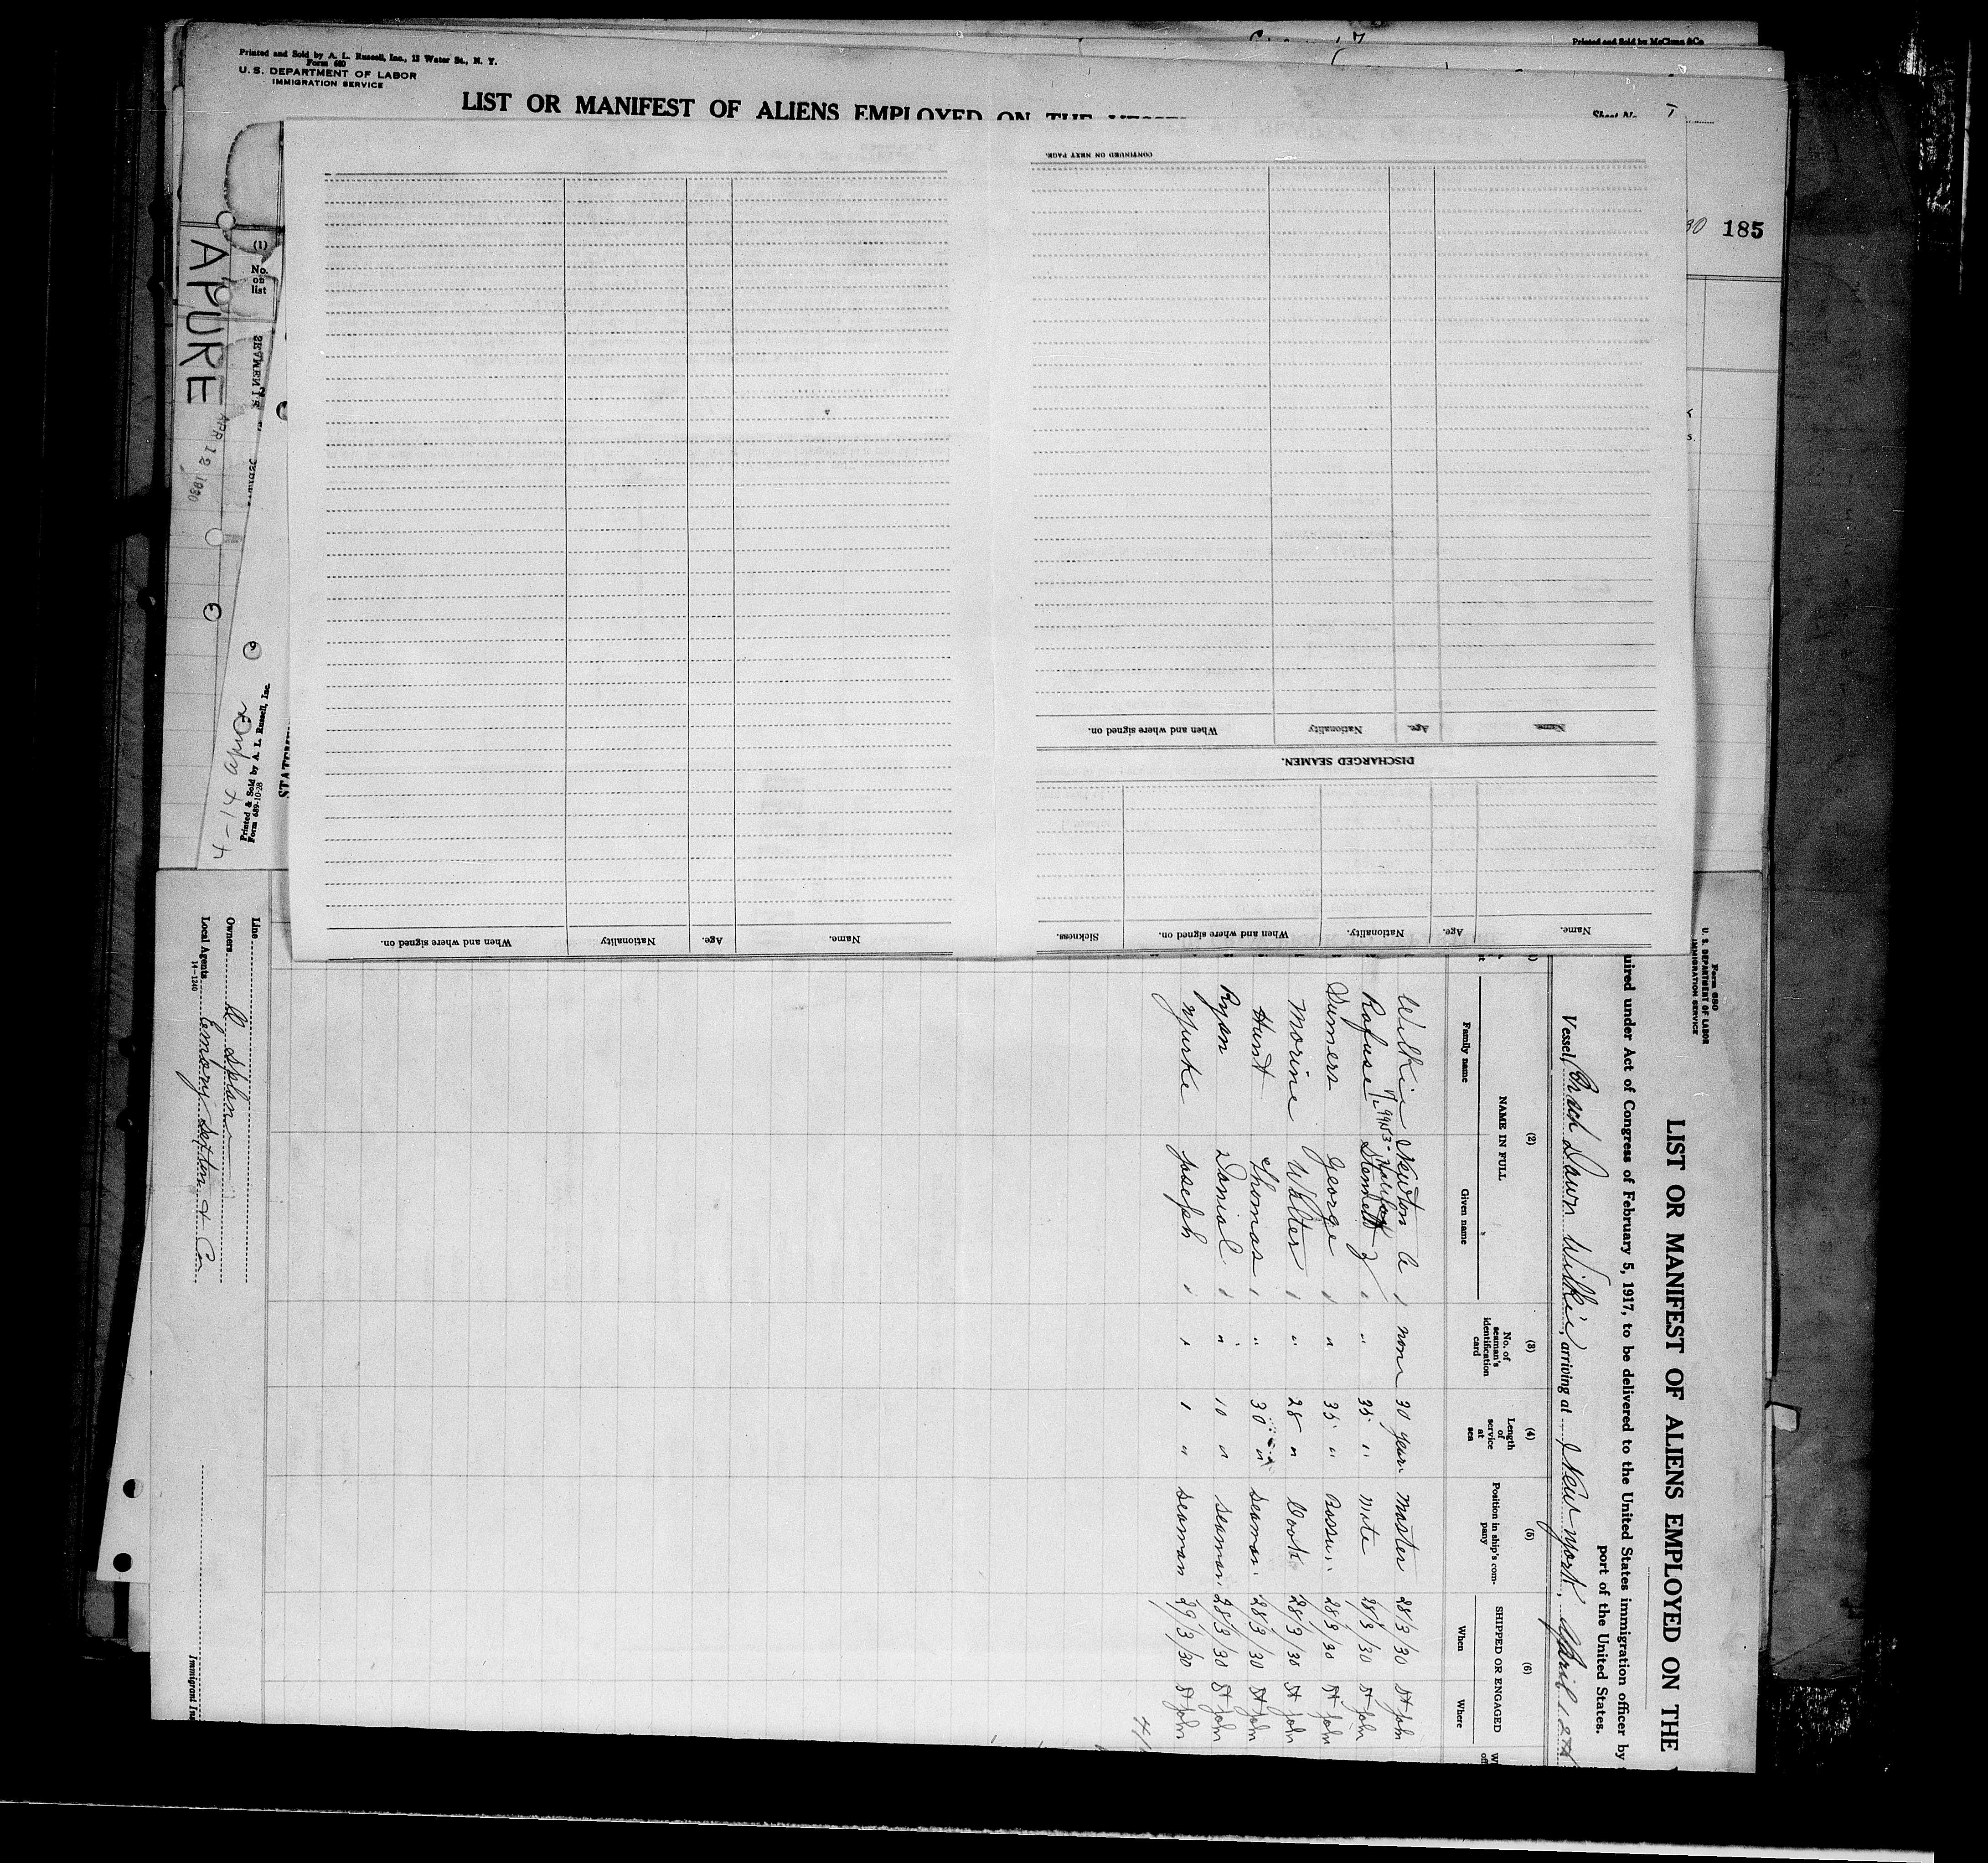 Printed and Sold by A. L. Russell, Inc., 13 Water St., N. Y.
Form 680
U. S. DEPARTMENT OF LABOR
IMMIGRATION SERVICE
LIST OR MANIFEST OF ALIENS EMPLOYED ON THE VESSEL
Sheet No.
Printed and Sold by McClunn & Co
30 185
APURE
APR 12 1930
(1)
No.
on
list
Printed & Sold by A. L. Russell, Inc.
Form 689-10-28
CONTINUED ON NEXT PAGE.
Name. Age. Nationality When and where signed on.
DISCHARGED SEAMEN.
Name. Age. Nationality. When and where signed on. Sickness.
Name. Age. Nationality When and where signed on.
Form 680
U. S. DEPARTMENT OF LABOR
IMMIGRATION SERVICE
LIST OR MANIFEST OF ALIENS EMPLOYED ON THE
uired under Act of Congress of February 5, 1917, to be delivered to the United States immigration officer by
port of the United States.
Vessel Dawn Wilkie, arriving at New York, April 12th
(2) (3) (4) (5) (6)
NAME IN FULL
Family name Given name
No. of seaman's identification card
Length of service at sea
Position in ship's company
SHIPPED OR ENGAGED
When Where
Wilkie Newton none 30 years Master 28/3/30 St John
Rafuse " 35 " Mate 28/3/30 St John
Sumers George " 35 " Bossun 28/3/30 St John
Morine Walter " 28 " Cook 28/3/30 St John
Hunt Thomas " 30 " Seaman 28/3/30 St John
Ryan Danial " 10 " Seaman 28/3/30 St John
Joseph 1 " Seaman 29/3/30 St John
Line
Owners
Local Agents
14-1240
Immigrant Ins